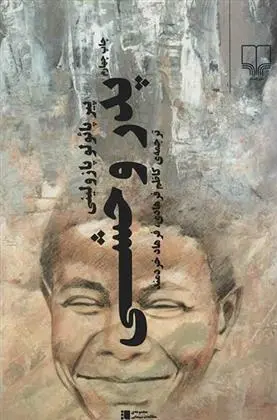 چاپ چهارم
پدر وحشی
پیر پائولو پازولینی
ترجمه‌ی کاظم فرهادی، فرهاد خردمند